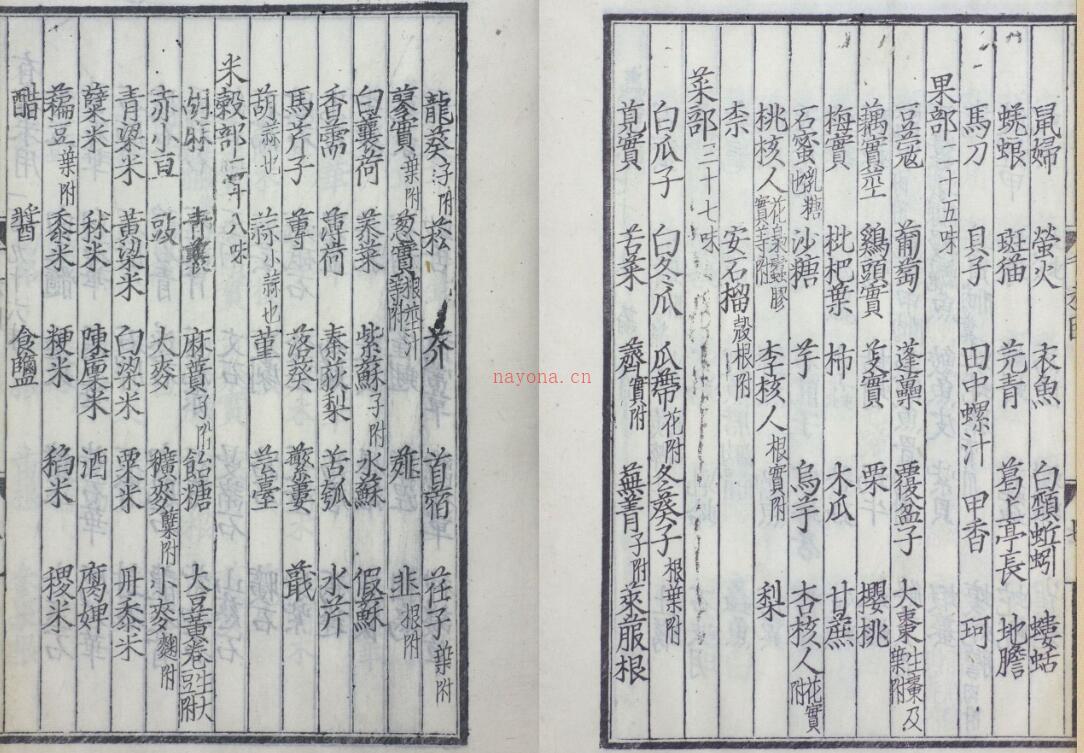 鼠婦 螢火 衣魚 白頸蚯蚓 螻蛄
蜣蜋 斑猫 芫青 葛上亭長 地膽
馬刀 貝子 田中螺汁 甲香 珂
果部二十五味
豆蔻 葡萄 蓬蘽 覆盆子 大棗生棗及葉附
藕實莖 鷄頭實 芰實 栗 櫻桃
梅實 枇杷葉 柿 木瓜 甘蔗
石蜜乳糖也 沙糖 芋 烏芋 杏核人花實附
桃核人花梟蠹膠實等附 李核人根實附 梨
柰 安石榴殼根附
菜部三十七味
白瓜子 白冬瓜 瓜蒂花附 冬葵子根葉附
莧實 苦菜 薺實附 蕪青子附 萊菔根
龍葵子附 菘 芥 首宿 荏子葉附
蓼實葉附 葱實根莖汁等附 薤 韭根附
白蘘荷 菾菜 紫蘇子附 水蘇 假蘇
香薷 薄荷 秦荻梨 苦瓠 水芹
馬芹子 蓴 落葵 蘩蔞 蕺
葫蒜也 蒜小蒜也 堇 芸薹
米穀部二十八味
胡麻 青蘘 麻蕡子附 飴糖 大豆黃卷生大豆附
赤小豆 豉 大麥 穬麥蘖附 小麥麴附
青梁米 黃梁米 白梁米 粟米 丹黍米
蘖米 秫米 陳廩米 酒 腐婢
藊豆葉附 黍米 粳米 稻米 稷米
醋 醬 食鹽
nayona.cn